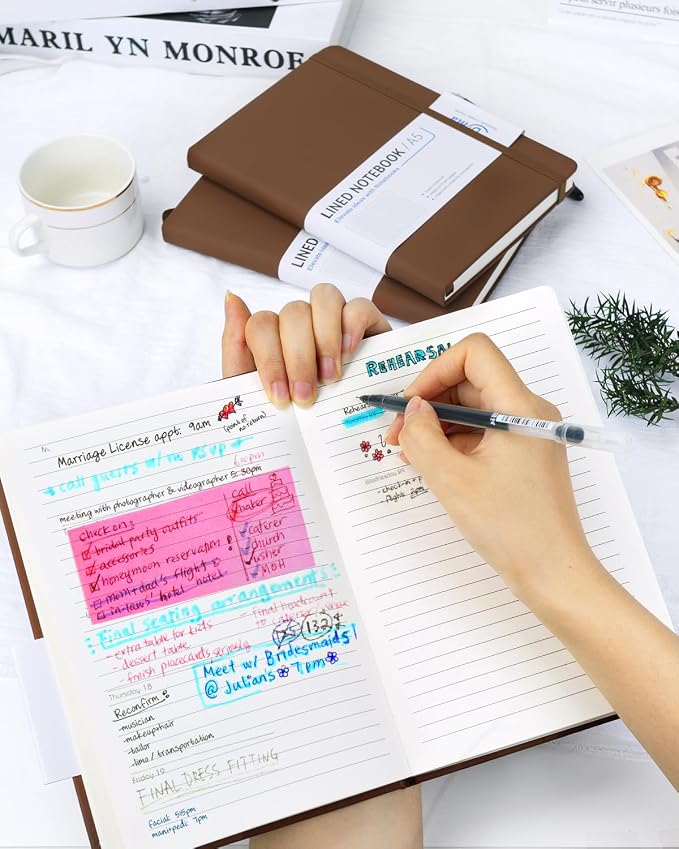 MARILYN MONROE
pour servir plusieurs fois
LINED NOTEBOOK / A5
Elevate Ideas with Notebooks
LINED
Elevate
Marriage License appt: 9am
(point of no return)
call guests w/ no RSVP
6:00pm
meeting with photographer & videographer 5:30pm
check on:
bridal party outfits
accessories
honeymoon reservation
mom+dad's flight
in-laws' hotel
call
baker
caterer
church
usher
MOH
Final seating arrangements:
- extra table for kids
- dessert table
- finish placecards seriously
- final headcount
75
132
Meet w/ Bridesmaids!
@ Julian's 7pm
Thursday 18
Reconfirm:
-musician
-makeup+hair
-tailor
-limo/transportation
Friday 19
FINAL DRESS FITTING
facial 515pm
mani+pedi 7pm
REHEARSAL
Wednesday
- check-in
- flights 2pm